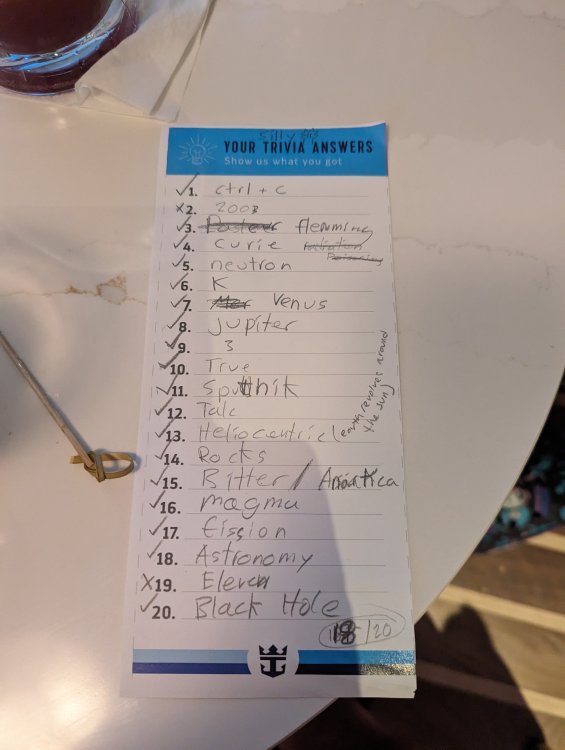 YOUR TRIVIA ANSWERS
Show us what you got
✓1. Ctrl + C
x2. 2003
✓3. Pasteur Flemming
✓4. Curie Radiation Poisoning
✓5. neutron
✓6. K
✓7. Mer Venus
✓8. Jupiter
✓9. 3
✓10. True
✓11. Sputnik
✓12. Talc
✓13. Heliocentric (earth revolves around the sun)
✓14. Rocks
✓15. Bitter / Antartica
✓16. magma
✓17. fission
✓18. Astronomy
X19. Eleven
✓20. Black Hole
18/20